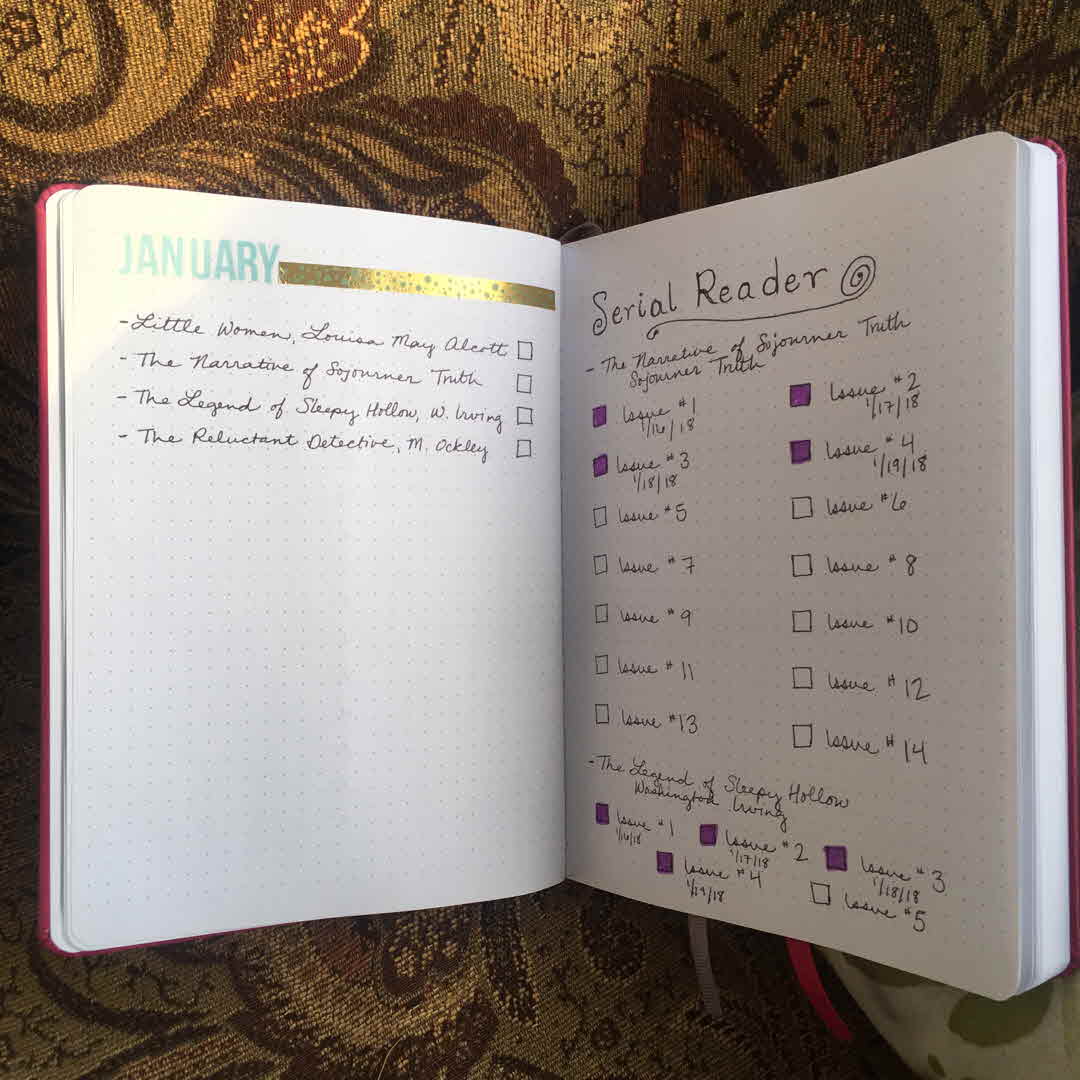 JANUARY
- Little Women, Louisa May Alcott
- The Narrative of Sojourner Truth
- The Legend of Sleepy Hollow, W. Irving
- The Reluctant Detective, M. Ockley
Serial Reader
- The Narrative of Sojourner Truth
Sojourner Truth
Issue #1
1/16/18
Issue #2
1/17/18
Issue #3
1/18/18
Issue #4
1/19/18
Issue #5
Issue #6
Issue #7
Issue #8
Issue #9
Issue #10
Issue #11
Issue #12
Issue #13
Issue #14
- The Legend of Sleepy Hollow
Washington Irving
Issue #1
1/16/18
Issue #2
1/17/18
Issue #3
1/18/18
Issue #4
1/19/18
Issue #5